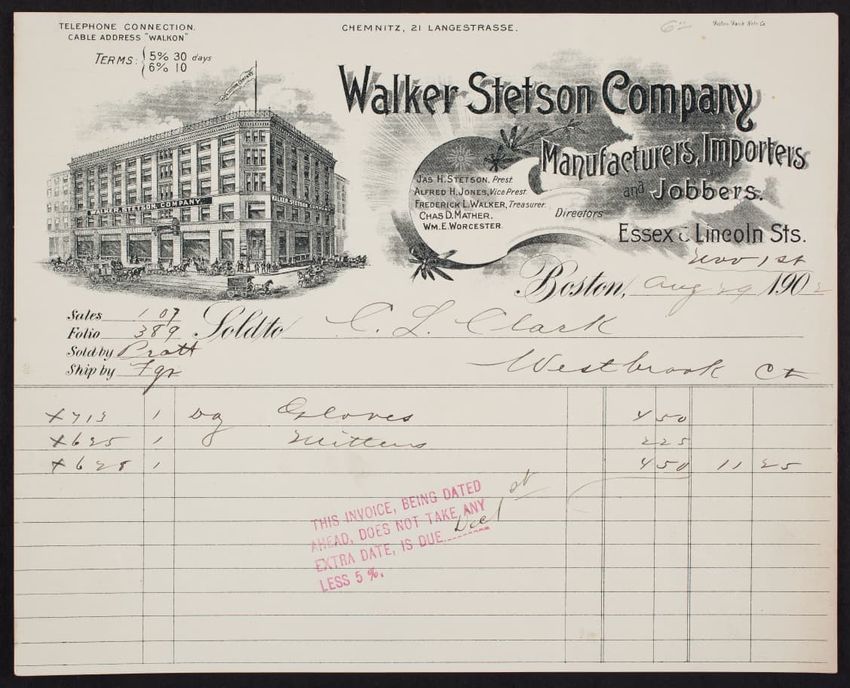 TELEPHONE CONNECTION.
CABLE ADDRESS "WALKON"
TERMS: 5% 30 days
6% 10
CHEMNITZ, 21 LANGESTRASSE.
Walker Stetson Company
Manufacturers, Importers
and Jobbers.
JAS H. STETSON, Prest.
ALFRED H. JONES, Vice Prest.
FREDERICK L. WALKER, Treasurer.
CHAS D. MATHER.
WM. E. WORCESTER.
Directors
Essex & Lincoln Sts.
WALKER, STETSON, COMPANY.
WALKER, STETSON
Nov 1st
Boston, Aug 29 1902
Sales 107
Folio 389
Sold by Pratt
Ship by Fgt
Sold to C. L. Clark
Westbrook Ct
x713 1 Dz Gloves 4 50
x625 1 Mittens 2 25
x628 1 4 50 11 25
THIS INVOICE, BEING DATED
AHEAD, DOES NOT TAKE ANY
EXTRA DATE, IS DUE Dec 1st
LESS 5 %.